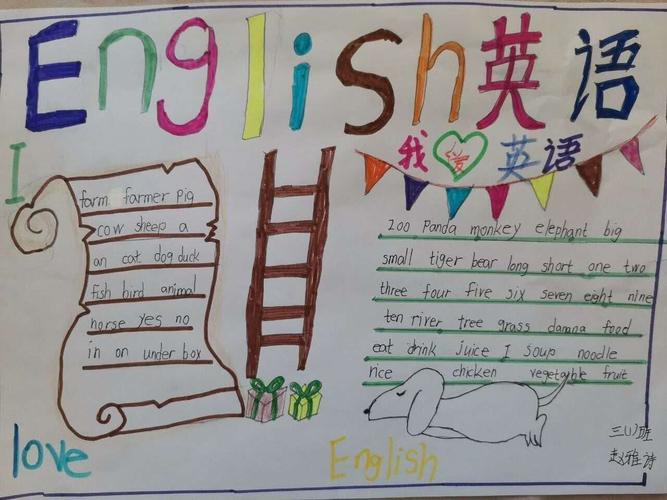 English英语
I
我爱英语
farm farmer pig
cow sheep a
an cat dog duck
fish bird animal
horse yes no
in on under box
zoo panda monkey elephant big
small tiger bear long short one two
three four five six seven eight nine
ten river tree grass danana food
eat drink juice I soup noodle
rice chicken vegetable fruit
love
English
三(1)班
赵雅诗